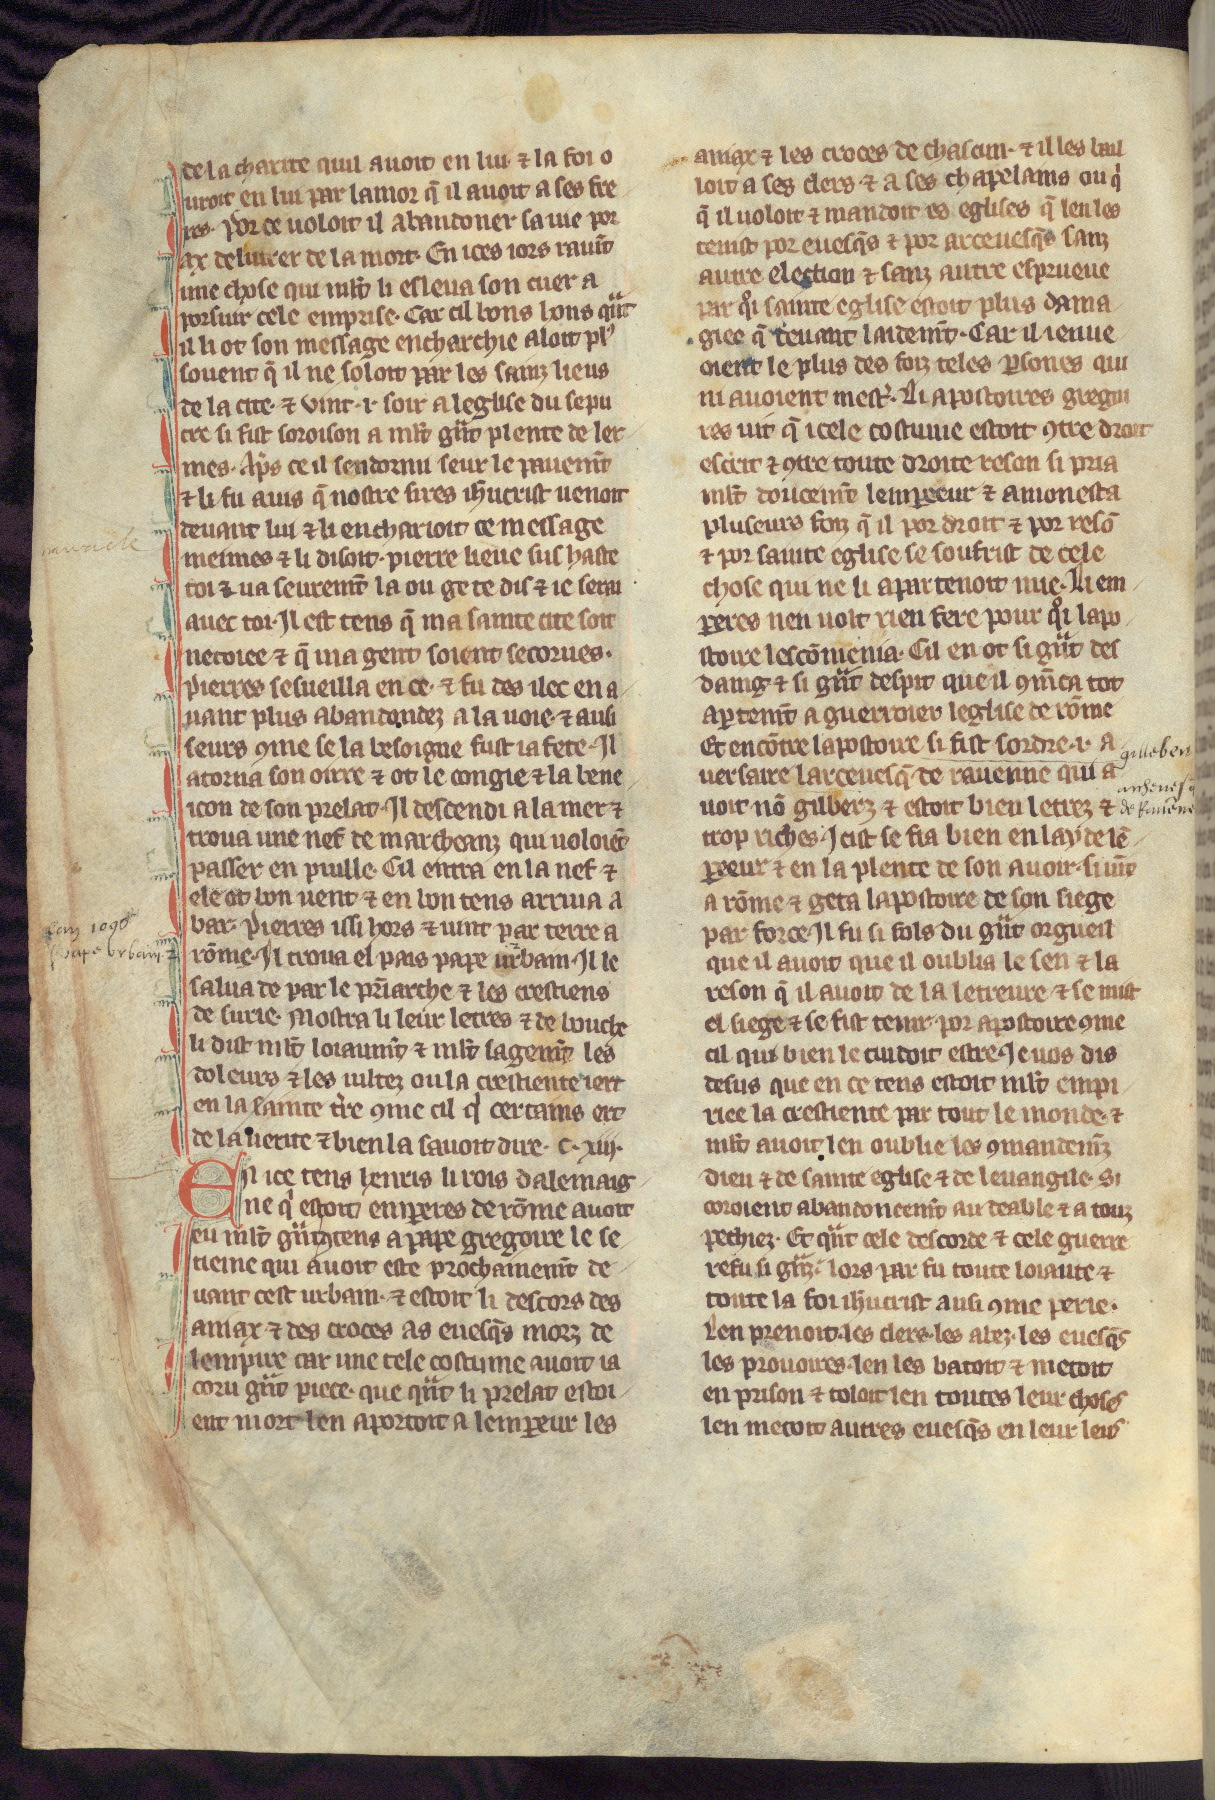 de la charite quil auoit en lui ⁊ la foi o
uroit en lui par lamor q̃ il auoit a ses fre
res. Por ce uoloit il abandoner sa uie por
ax deliurer de la mort. En ices iors rauint
une chose qui mlt̃ li esleua son cuer a
porsuir cele emprise. Car cil bons hons qñt
il li ot son message encharchie aloit plꝰ
souent q̃ il ne soloit par les sainz lieus
de la cite. ⁊ vint .i. soir a leglise du sepu
cre si fist soroison a mlt̃ gñt plente de ler
mes. Ap̃s ce il sendormi seur le pauemñt
⁊ li fu auis q̃ nostre sires ih̃ucrist uenoit
deuant lui ⁊ li encharioit ce message
meimes ⁊ li disoit. pierre lieue sus haste
toi ⁊ ua seuremñt la ou ge te dis ⁊ ie serai
auec toi. Il est tens q̃ ma sainte cite soit
netoiee ⁊ q̃ ma gent soient secorues.
Pierres sesueilla en ce. ⁊ fu des ilec en a
uant plus abandondez a la uoie. ⁊ ausi
seurs ꝯme se la besoigne fust ia fete. Il
atorna son oirre ⁊ ot le congie ⁊ la bene
icon de son prelat. Il descendi a la mer ⁊
troua une nef de marcheanz qui uoloiẽt
passer en puille. Cil entra en la nef ⁊
ele ot bon uent ⁊ en bon tens arriua a
bar. Pierres issi hors ⁊ uint par terre a
rõme. Il troua el pais pape urbain. Il le
salua de par le p̃riarche ⁊ les crestiens
de surie. Mostra li leur letres ⁊ de bouche
li dist mlt̃ loiaumñt ⁊ mlt̃ sagemñt les
doleurs ⁊ les uiltez ou la crestiente iert
en la sainte t̃re ꝯme cil qͥ certains ert
de la uerite ⁊ bien la sauoit dire. C. xiij.
En ice tens henris li rois dalemaig
ne qͥ estoit emꝑeres de rõme auoit
eu mlt̃ gñt ꝯtens a pape gregoire le se
tieme qui auoit este prochainemñt de
uant cest urbain. ⁊ estoit li descors des
aniax ⁊ des croces as euesq̃s morz de
lempire car une tele costume auoit ia
coru gñt piece. que qñt li prelat estoi
ent mort len aportoit a lemꝑeur les
aniax ⁊ les croces de chascun. ⁊ il les bail
loit a ses clers ⁊ a ses chapelains ou qͥ
q̃ il uoloit ⁊ mandoit es eglises q̃ len les
tenist por euesq̃s ⁊ por arceuesq̃s sanz
autre election ⁊ sanz autre esprueue
par qͦi sainte eglise estoit plus dama
giee q̃ deuant laidemñt. Car il i enue
oient le plus des foiz teles ꝑsones qui
ni auoient mest̃. Li apostoires gregoi
res uit q̃ icele costume estoit ꝯtre droit
escrit ⁊ ꝯtre toute droite reson si pria
mlt̃ doucemñt lemꝑeeur ⁊ amonesta
pluseurs foiz q̃ il por droit ⁊ por resõ
⁊ por sainte eglise se soufrist de cele
chose qui ne li apartenoit mie. Li em
ꝑeres nen uolt rien fere pour qͦi lapo
stoire lescõmenia. Cil en ot si gñt des
daing ⁊ si gñt despit que il ꝯmẽca tot
aꝑtemñt a guerroier leglise de rõme
Et encõtre lapostoire si fist sordre .i. a
uersaire larceuesq̃ de rauenne qui a
uoit nõ gilberz ⁊ estoit bien letrez ⁊
trop riches. Icist se fia bien en lay de lẽ
ꝑeeur ⁊ en la plente de son auoir. si uĩt
a rõme ⁊ geta lapostoire de son siege
par force. Il fu si fols du gñt orgueil
que il auoit que il oublia le sen ⁊ la
reson q̃ il auoit de la letreure ⁊ se mist
el siege ⁊ se fist tenir por apostoire ꝯme
cil qui bien le cuidoit estre. Ie uos dis
desus que en ce tens estoit mlt̃ empi
riee la crestiente par tout le monde. ⁊
mlt̃ auoit len oublie les ꝯmandemñz
dieu ⁊ de sainte eglise ⁊ de leuangile. Si
coroient abandoneemñt au deable ⁊ a touz
pechiez. Et qñt cele descorde ⁊ cele guerre
refu si gñz. lors par fu toute loiaute ⁊
toute la foi ih̃ucrist ausi ꝯme perie.
Len prenoit les clers. les abez. les euesq̃s
les prouoires. len les batoit ⁊ metoit
en prison ⁊ toloit len toutes leur choses
len metoit autres euesq̃s en leur leus
miracle
lan 1098
pape Urbain. 2
gillebert
archeuesq̃
de Rauenne